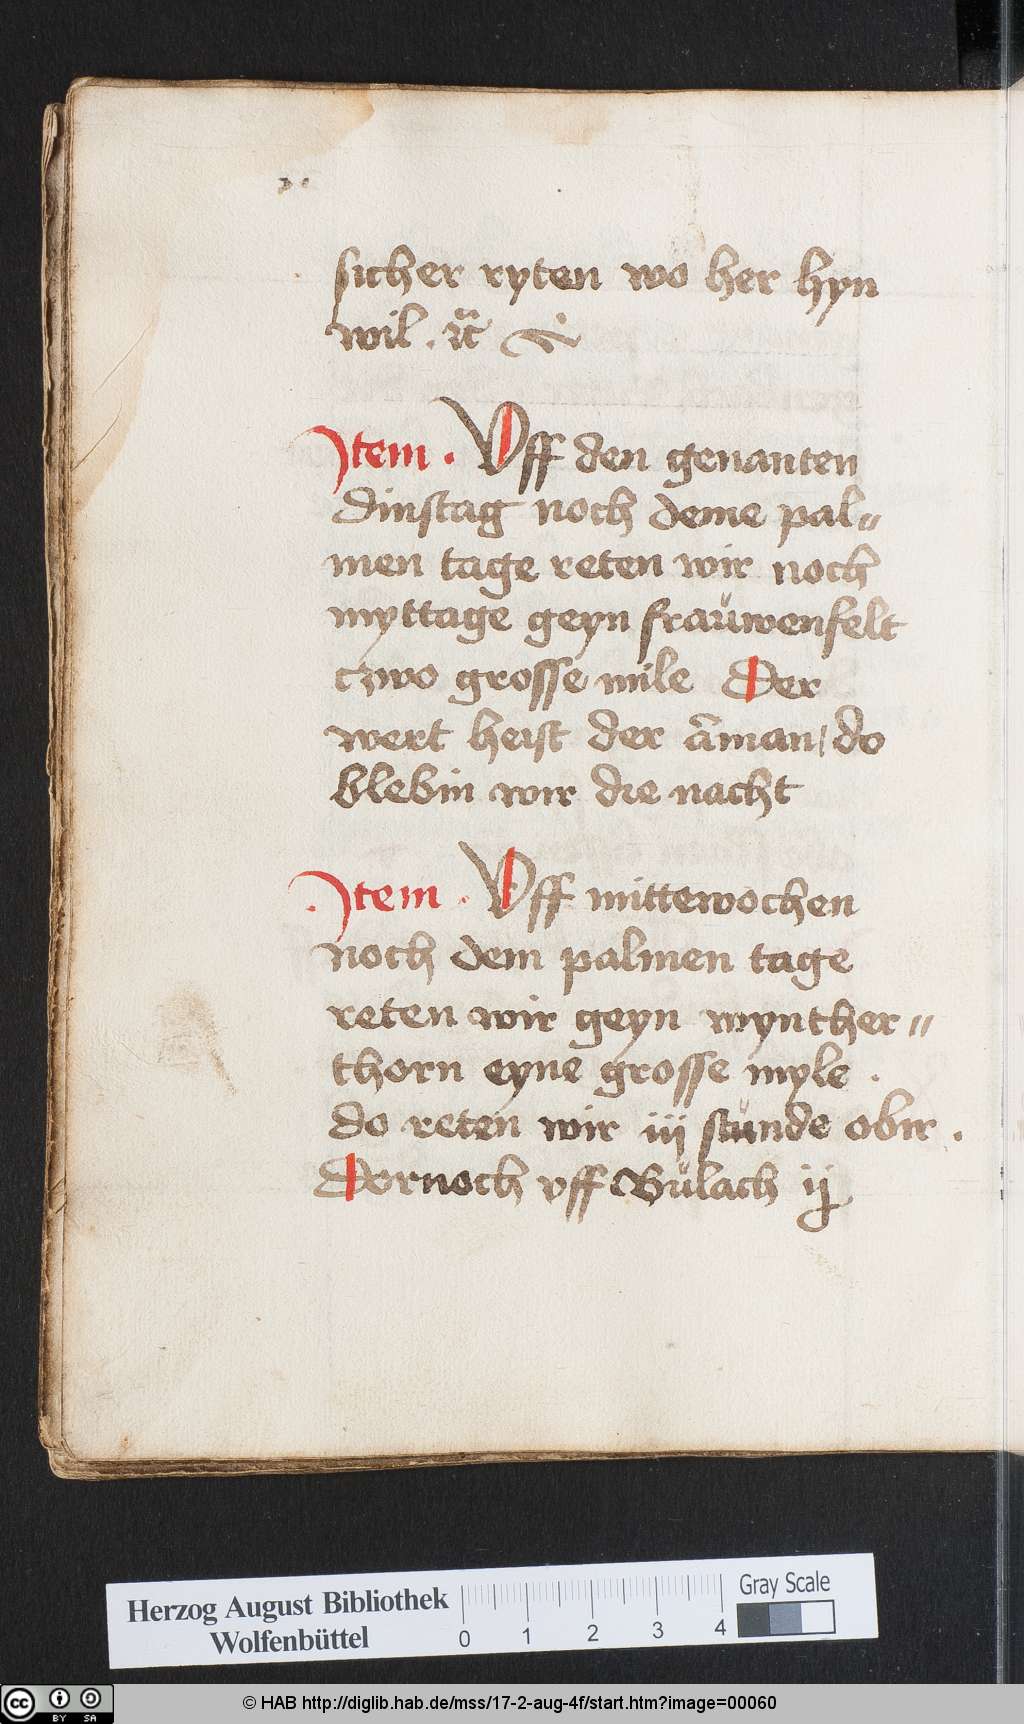 sicher ryten wo her hyn
wil . ꝛc̃
Item . Vff den genanten
dinstag noch deme pal„
men tage reten wir noch
myttage geyn fraüwenfelt
czwo grosse mile Der
wert heist der āman / do
blebin wir die nacht
Item . Vff mittewochen
noch dem palmen tage
reten wir geyn wynther„
thorn eyne grosse myle .
do reten wir iij stünde obir .
Dornoch vff Bülach ij
Herzog August Bibliothek
Wolfenbüttel
0 1 2 3 4
Gray Scale
cc BY SA
© HAB http://diglib.hab.de/mss/17-2-aug-4f/start.htm?image=00060